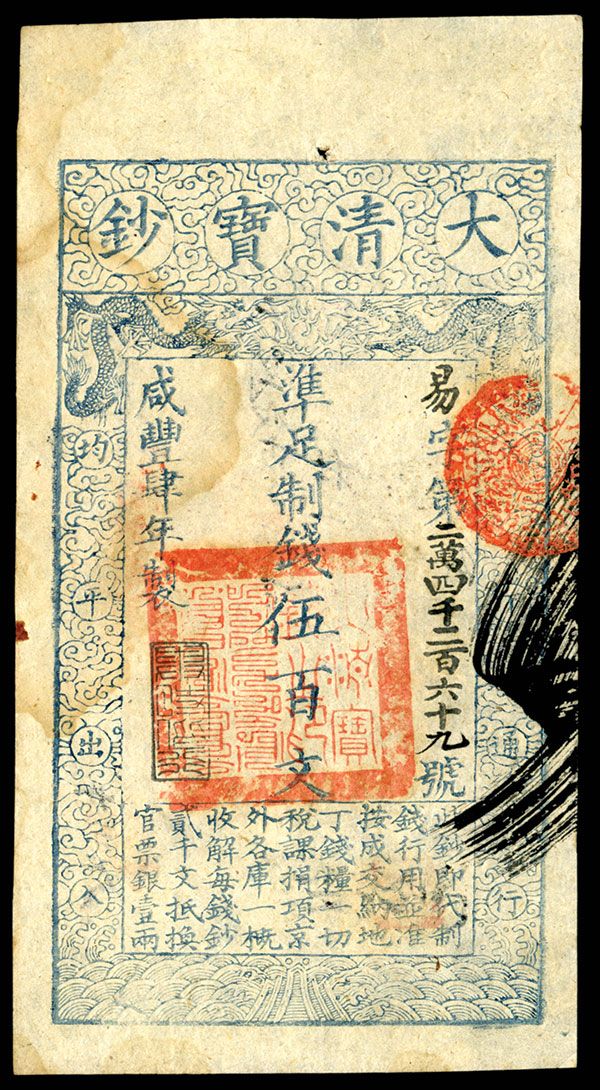 大清寶鈔
通行
易字第二萬四千二百六十九號
準足制錢伍百文
咸豐肆年製
均平出入
此鈔即代制
錢行用並准
按成交納地
丁錢糧一切
稅課捐項京
外各庫一概
收解每錢鈔
貳千文抵換
官票銀壹兩